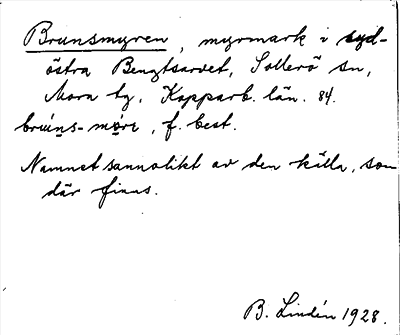 Brunsmyren, myrmark i syd-
östra Bengtsarvet, Sollerö sn,
Mora tg, Kopparb. län. 84.
bruns-möre, f. best.
Namnet sannolikt av den källa, som
där finns.
B. Lindén 1928.